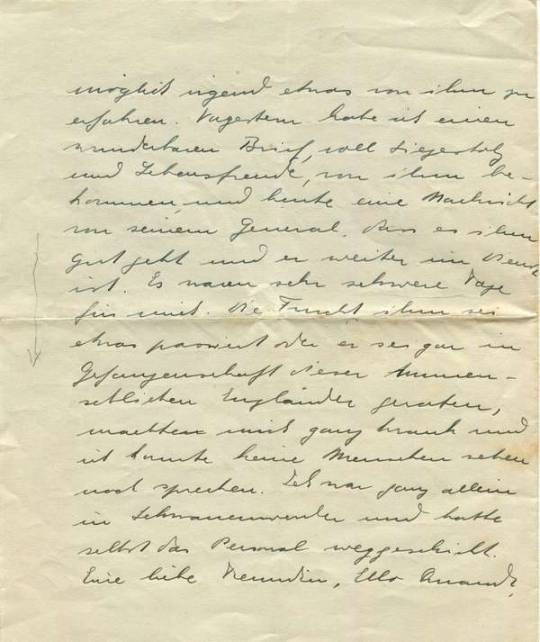 möglich irgend etwas von ihm zu
erfahren. Vorgestern habe ich einen
wunderbaren Brief, voll Siegerstolz
und Lebensfreude, von ihm be-
kommen, und heute eine Nachricht
von seinem General, dass es ihm
gut geht und er weiter im Dienst
ist. Es waren sehr schwere Tage
für mich. Die Furcht, ihm sei
etwas passiert oder er sei gar in
Gefangenschaft dieser unmen-
schlichen Engländer geraten,
machten mich ganz krank und
ich konnte keine Menschen sehen
noch sprechen. Ich war ganz allein
in Schwanenwerder und hatte
selbst das Personal weggeschickt.
Eine liebe Freundin, Ello